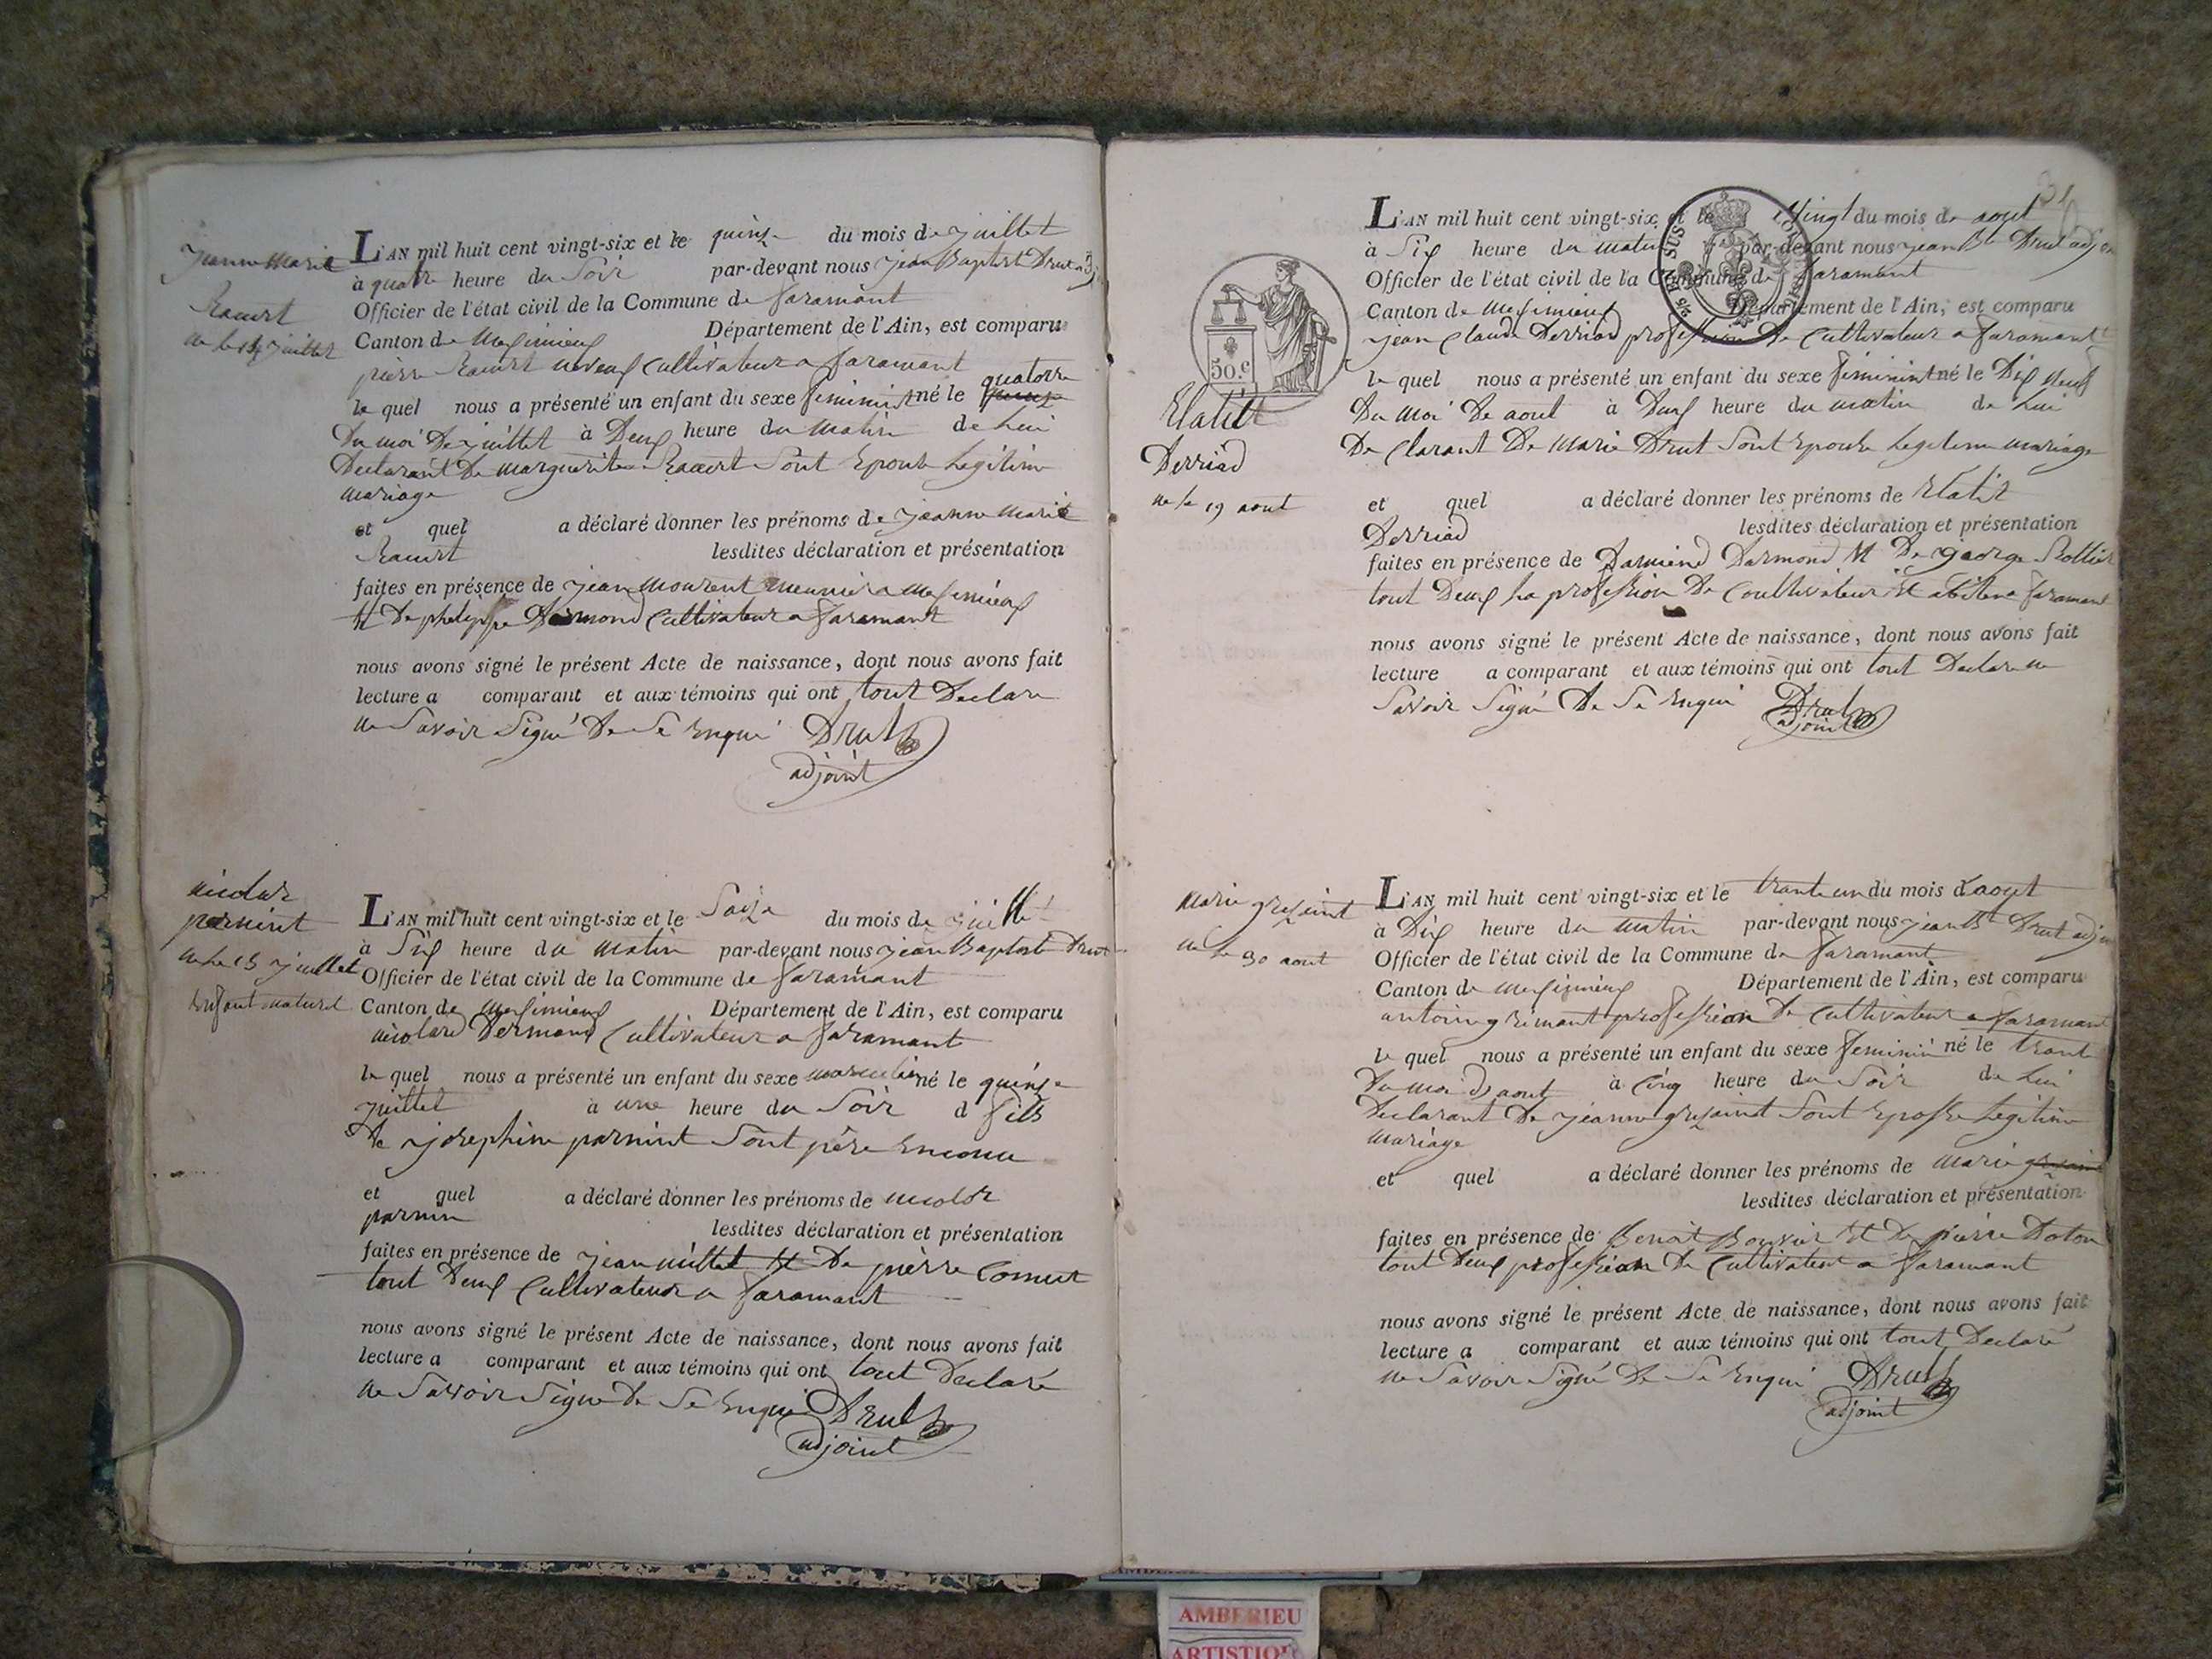 jeanne Marie
né le 14 juillet
L'AN mil huit cent vingt-six et le quinze du mois de juillet
à quatre heure du Soir par-devant nous jean Baptist Drut
Officier de l'état civil de la Commune de faramant
Canton de Meximieux Département de l'Ain, est comparu
pierre cultivateur a faramant
le quel nous a présenté un enfant du sexe feminint né le quatorze
Du moi De juillet à Deux heure du Matin de Lui
Declarant De marguerite Sont Epouse Legitime
mariage
et quel a déclaré donner les prénoms de jeanne Marie
lesdites déclaration et présentation
faites en présence de jean Mourent meunier a Meximieux
Et De phelippe Dermond Cultivateur a faramant
nous avons signé le présent Acte de naissance, dont nous avons fait
lecture a comparant et aux témoins qui ont tout Declare
ne Savoir Signé De Se Enqui Drut
adjoint
nicolas
pernint
né le 15 juillet
Enfant naturel
L'AN mil huit cent vingt-six et le Saize du mois de juillet
à Six heure du Matin par-devant nous jean Baptiste Drut
Officier de l'état civil de la Commune de faramant
Canton de Meximieux Département de l'Ain, est comparu
nicolas Dermond Cultivateur a faramant
le quel nous a présenté un enfant du sexe masculin né le quinze
juillet à une heure du Soir d fils
De josephine parnint Sont père Enconu
et quel a déclaré donner les prénoms de
parnin lesdites déclaration et présentation
faites en présence de jean millet Et De pierre Comut
tout Deux Cultivateur a faramant
nous avons signé le présent Acte de naissance, dont nous avons fait
lecture a comparant et aux témoins qui ont tout Declaré
ne Savoir Signe De Se Enqui Drut
adjoint
31
L'AN mil huit cent vingt-six et le Vingt du mois de aout
à Six heure du matin par-devant nous jean Bte Drut adjoint
Officier de l'état civil de la Commune de faramant
Canton de Meximieux Département de l'Ain, est comparu
jean Claude Derriad profession De Cultivateur a faramant
le quel nous a présenté un enfant du sexe feminint né le Dix neuf
Du moi De aout à Deux heure du matin de Lui
De Clarant De Marie Drut Sont Epouse Legitime mariage
et quel a déclaré donner les prénoms de
Derriad lesdites déclaration et présentation
faites en présence de Darmond Et De george
tout Deux La profession De Coultivateur Et abitent faramant
nous avons signé le présent Acte de naissance, dont nous avons fait
lecture a comparant et aux témoins qui ont tout Declare ne
Savoir Signé De Se Enqui Drut
adjoint
50.c
EN SUS
Derriad
né le 19 aout
Marie
né le 30 aout
L'AN mil huit cent vingt-six et le trante un du mois d aout
à Dix heure du matin par-devant nous jean Bt Drut adjoint
Officier de l'état civil de la Commune de faramant
Canton de Meximieux Département de l'Ain, est comparu
antoine profession De Cultivateur a faramant
le quel nous a présenté un enfant du sexe feminin né le trante
Du moi D aout à Cinq heure du Soir de Lui
Declarant De jeanne Sont Epouse Legitime
mariage
et quel a déclaré donner les prénoms de Marie
lesdites déclaration et présentation
faites en présence de Benoit Bouvier Et De pierre Doton
tout Deux profession De Cultivateur a faramant
nous avons signé le présent Acte de naissance, dont nous avons fait
lecture a comparant et aux témoins qui ont tout Declaré
ne Savoir Signé De Se Enqui Drut
adjoint
AMBERIEU
ARTISTIQ